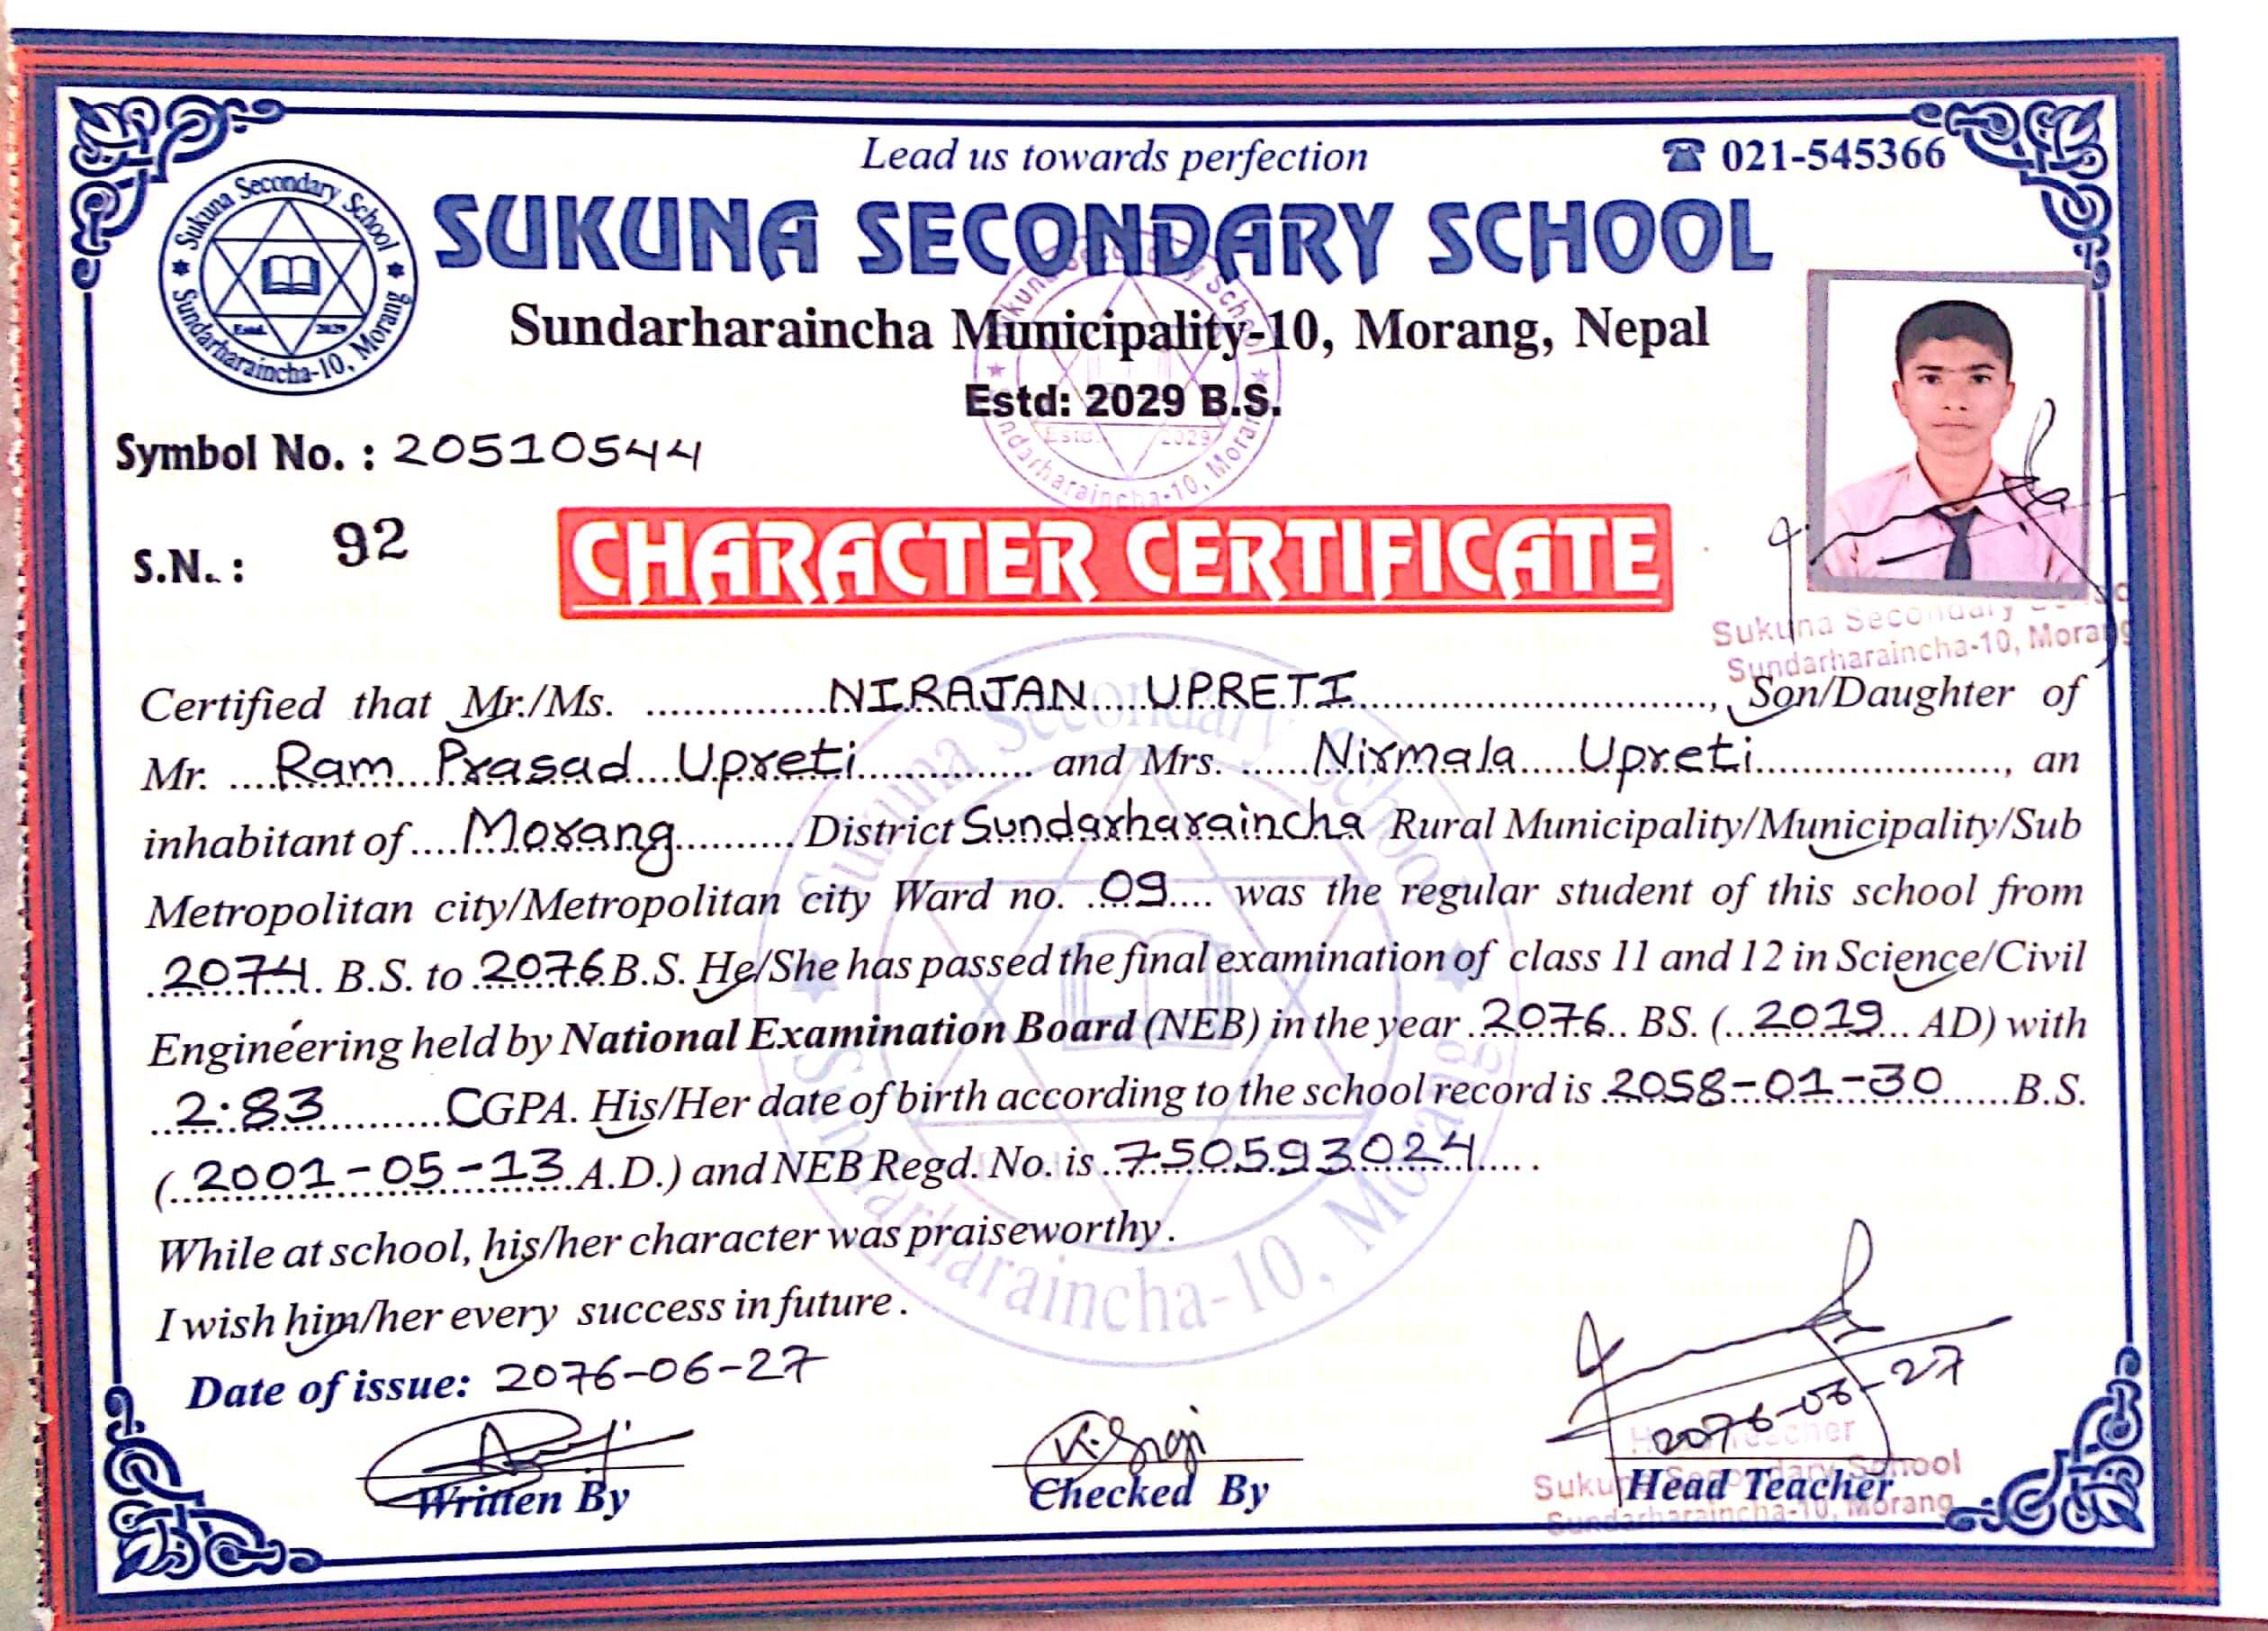 Lead us towards perfection
☎ 021-545366
Sukuna Secondary School
Sundarharaincha-10, Morang
Estd. 2029
SUKUNA SECONDARY SCHOOL
Sundarharaincha Municipality-10, Morang, Nepal
Estd: 2029 B.S.
Symbol No. : 20510544
S.N. : 92
CHARACTER CERTIFICATE
Sukuna Secondary
Sundarharaincha-10, Morang
Certified that Mr./Ms. NIRAJAN UPRETI, Son/Daughter of
Mr. Ram Prasad Upreti and Mrs. Nirmala Upreti, an
inhabitant of Morang District Sundarharaincha Rural Municipality/Municipality/Sub
Metropolitan city/Metropolitan city Ward no. 09 was the regular student of this school from
2074 B.S. to 2076 B.S. He/She has passed the final examination of class 11 and 12 in Science/Civil
Engineering held by National Examination Board (NEB) in the year 2076 BS. (2019 AD) with
2:83 CGPA. His/Her date of birth according to the school record is 2058-01-30 B.S.
(2001-05-13 A.D.) and NEB Regd. No. is 750593024.
While at school, his/her character was praiseworthy.
I wish him/her every success in future.
Date of issue: 2076-06-27
2076-06-27
Written By
Checked By
Head Teacher
Head Teacher
Sukuna Secondary School
Sundarharaincha-10, Morang